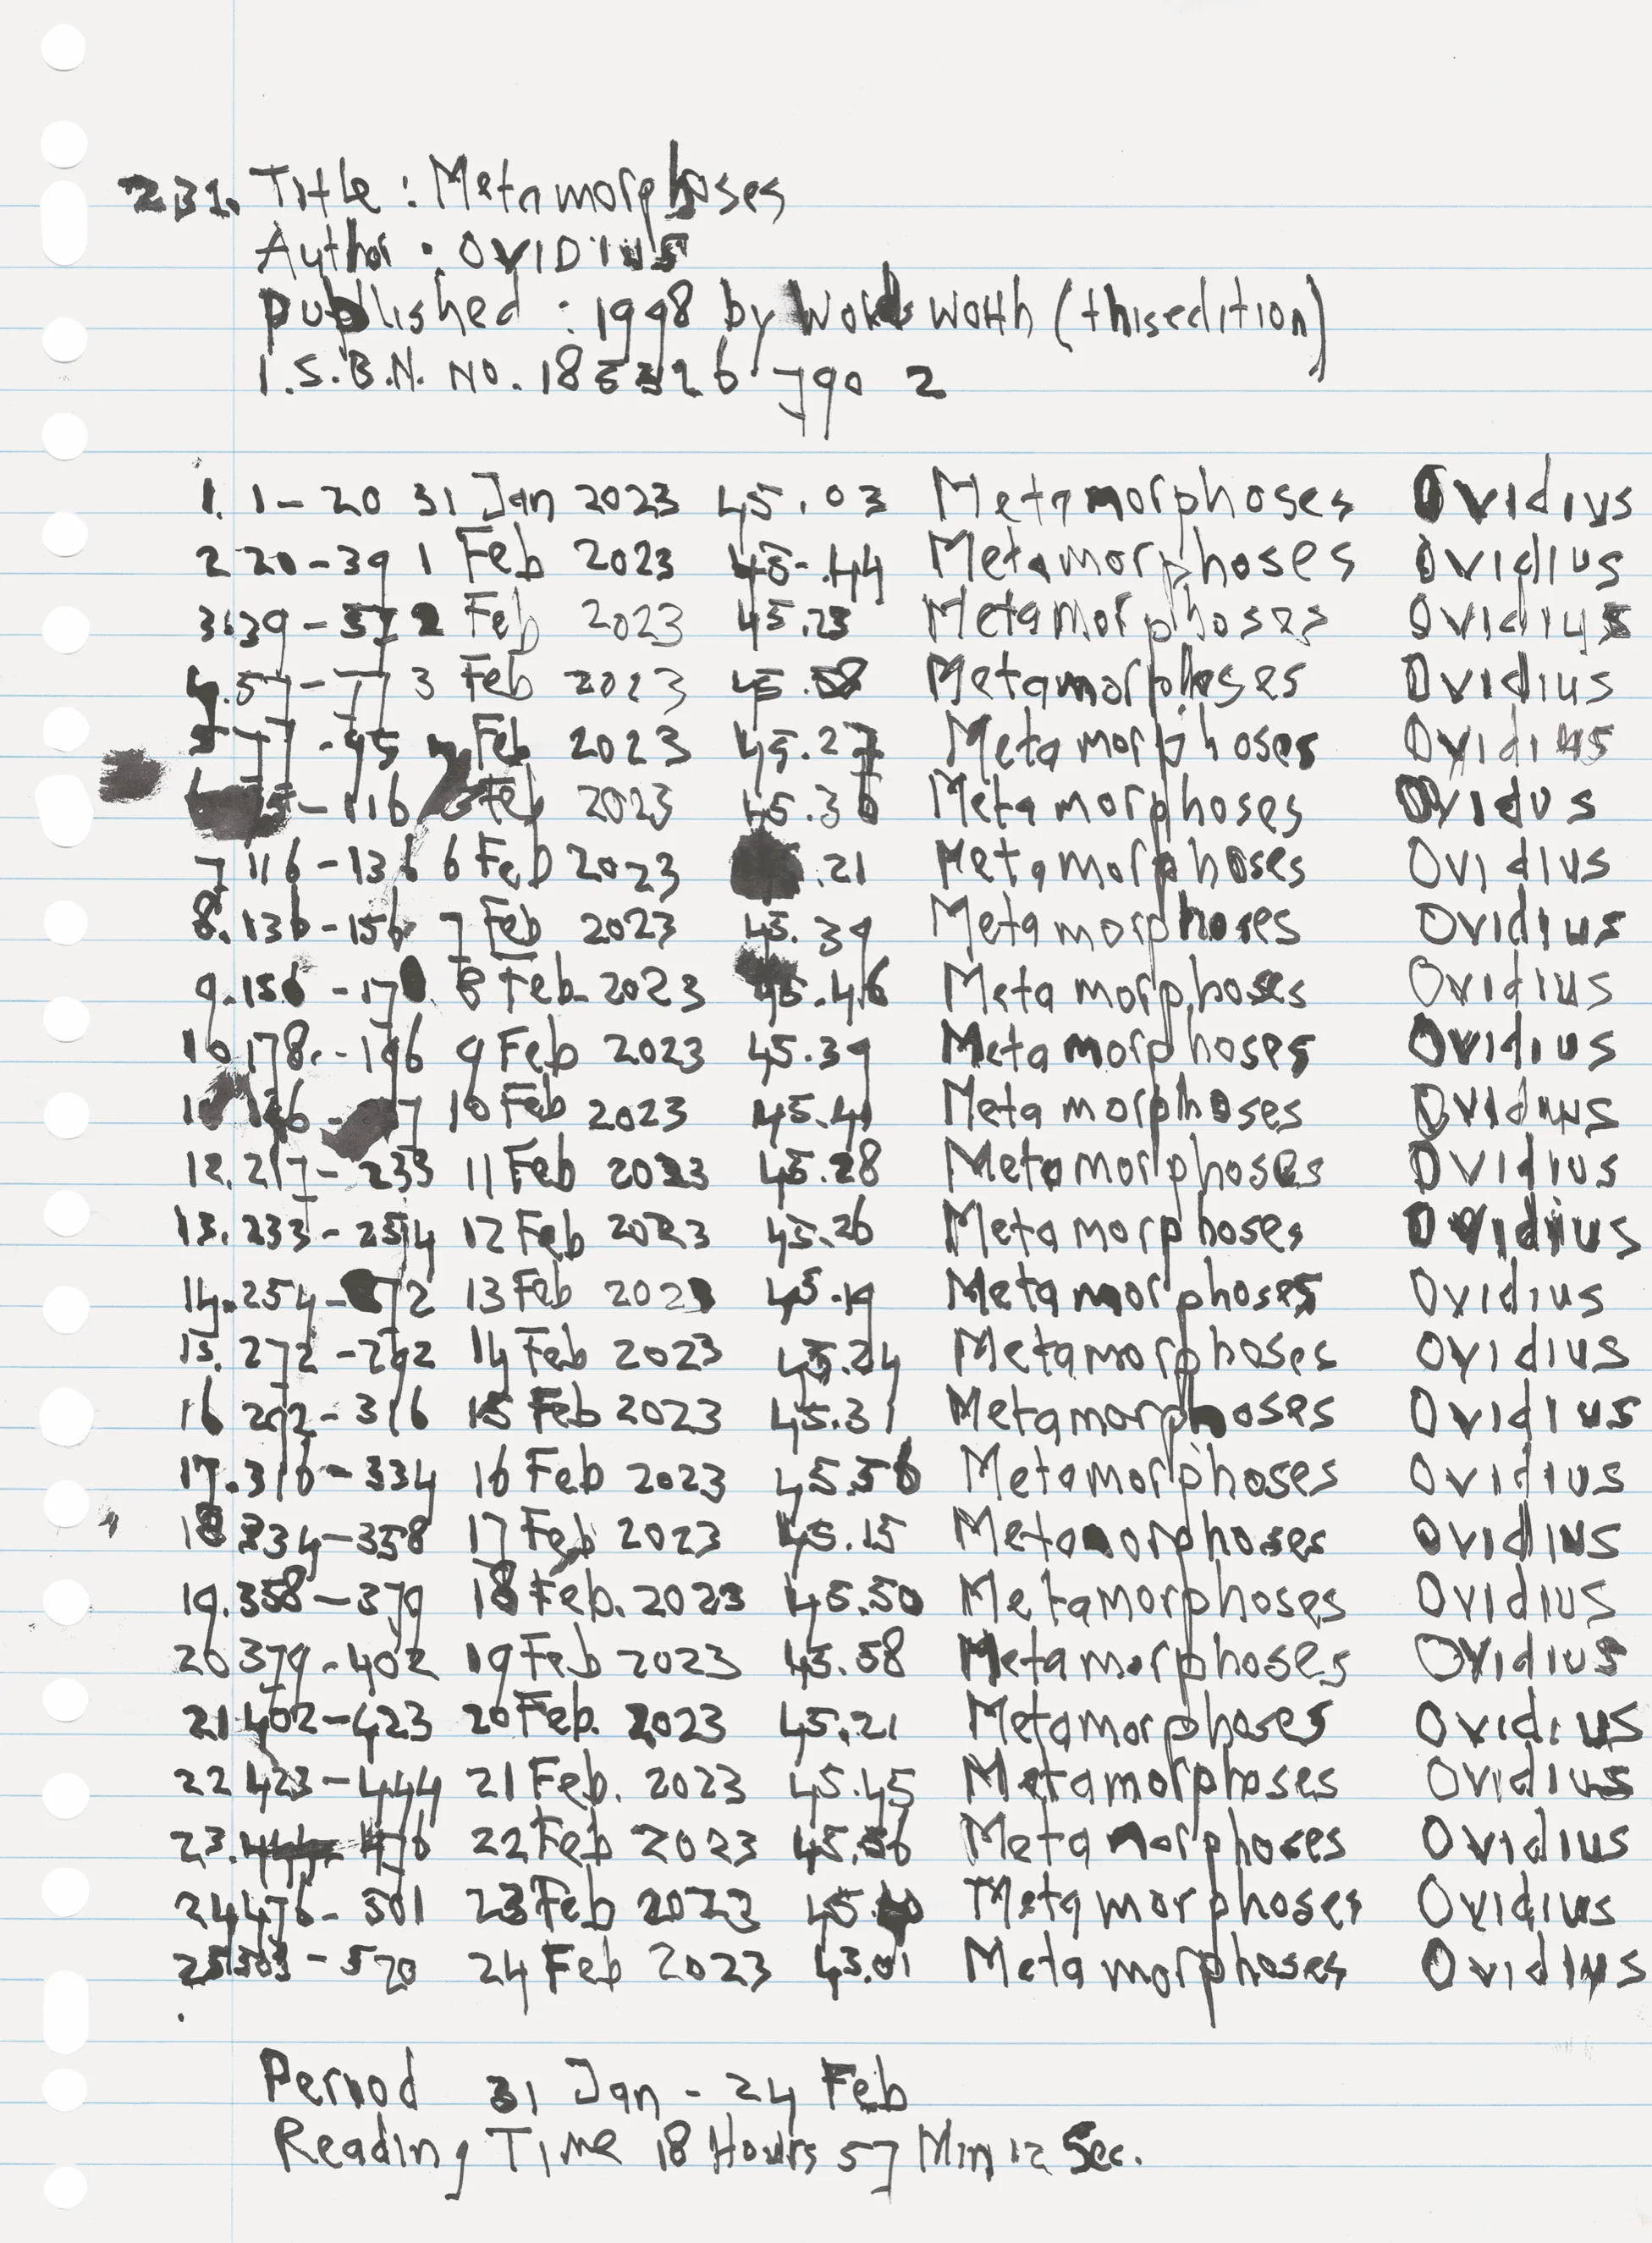 231. Title : Metamorphoses
Author : OVIDIUS
Published : 1998 by Wordsworth (this edition)
I.S.B.N. NO. 185326 790 2
1. 1 - 20 31 Jan 2023 45.03 Metamorphoses Ovidius
2 20 - 39 1 Feb 2023 45.44 Metamorphoses Ovidius
3. 39 - 57 2 Feb 2023 45.23 Metamorphoses Ovidius
4. 57 - 77 3 Feb 2023 45.58 Metamorphoses Ovidius
5 77 - 95 4 Feb 2023 45.27 Metamorphoses Ovidius
- 116 Feb 2023 45.36 Metamorphoses Ovidus
7 116 - 136 6 Feb 2023 .21 Metamorphoses Ovidius
8. 136 - 156 7 Feb 2023 45.39 Metamorphoses Ovidius
9. 156 - 178 8 Feb. 2023 45.46 Metamorphoses Ovidius
10 178. - 196 9 Feb 2023 45.39 Metamorphoses Ovidius
196 - 10 Feb 2023 45.41 Metamorphoses Ovidius
12. 217 - 233 11 Feb 2023 45.28 Metamorphoses Ovidius
13. 233 - 254 12 Feb 2023 45.26 Metamorphoses Ovidius
14. 254 - 272 13 Feb 2023 45.19 Metamorphoses Ovidius
15. 272 - 292 14 Feb 2023 45.24 Metamorphoses Ovidius
16 292 - 316 15 Feb 2023 45.31 Metamorphoses Ovidius
17. 316 - 334 16 Feb 2023 45.56 Metamorphoses Ovidius
18 334 - 358 17 Feb 2023 45.15 Metamorphoses Ovidius
19. 358 - 379 18 Feb. 2023 45.50 Metamorphoses Ovidius
20 379 - 402 19 Feb 2023 45.58 Metamorphoses Ovidius
21 402 - 423 20 Feb. 2023 45.21 Metamorphoses Ovidius
22 423 - 444 21 Feb. 2023 45.45 Metamorphoses Ovidius
23. 444 - 476 22 Feb 2023 45.56 Metamorphoses Ovidius
24 476 - 501 23 Feb 2023 Metamorphoses Ovidius
25 - 520 24 Feb 2023 43.01 Metamorphoses Ovidius
Period 31 Jan - 24 Feb
Reading Time 18 Hours 57 Min 12 Sec.